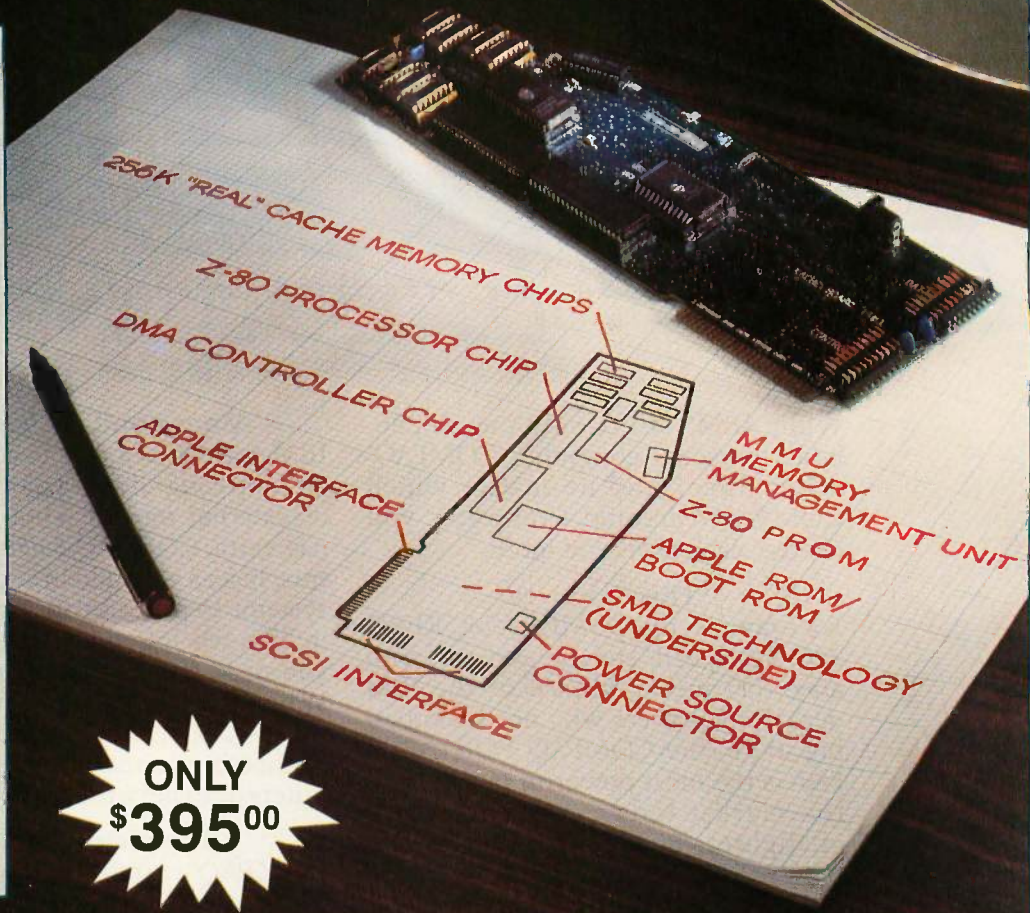 256K "REAL" CACHE MEMORY CHIPS
Z-80 PROCESSOR CHIP
DMA CONTROLLER CHIP
APPLE INTERFACE
CONNECTOR
M M U
MEMORY
MANAGEMENT UNIT
Z-80 PROM
APPLE ROM/
BOOT ROM
SMD TECHNOLOGY
(UNDERSIDE)
POWER SOURCE
CONNECTOR
SCSI INTERFACE
ONLY
$39500